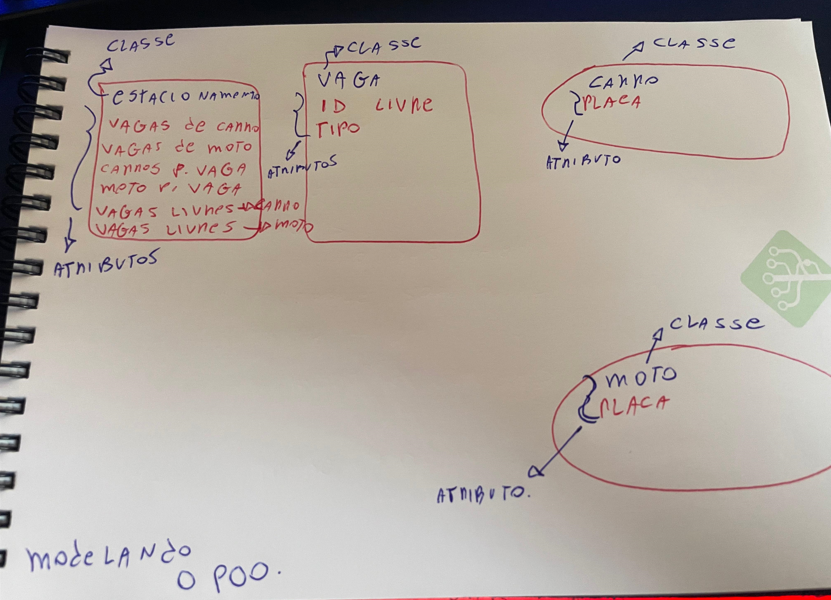 CLASSE
ESTACIONAMENTO
VAGAS de CARRO
VAGAS de MOTO
CARROS P. VAGA
MOTO P. VAGA
VAGAS LIVRES → CARRO
VAGAS LIVRES → MOTO
ATRIBUTOS
CLASSE
VAGA
ID LIVRE
TIPO
ATRIBUTOS
CLASSE
CARRO
PLACA
ATRIBUTO
CLASSE
MOTO
PLACA
ATRIBUTO.
MODELANDO
O POO.